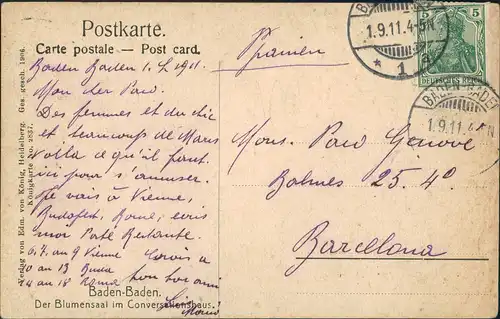 Postkarte.
Carte postale — Post card.
Spanien
BADEN-BADEN
1.9.11.4-5N
* 1 a
5 5
DEUTSCHES REICH
BADEN-BADEN
1.9.11.4-5N
Baden Baden 1. 9. 1911.
Mon cher Paw.
Des femmes et du chic
et beaucoup de
Voila ce qu'il faut
ici pour s'amuser.
Je vais à Vienne,
Budapest, Rome, ecris
moi Poste Restante.
6. 7. au 9 Vienne
10 au 13 Buda
14 au 18 Roma ton bon ami
Mons. Paw Genové
Balmes 25. 4º
Barcelona
Verlag von Edm. von König, Heidelberg. Ges. gesch. 1906.
Königkarte No. 2857.
Baden-Baden.
Der Blumensaal im Conversationshaus.